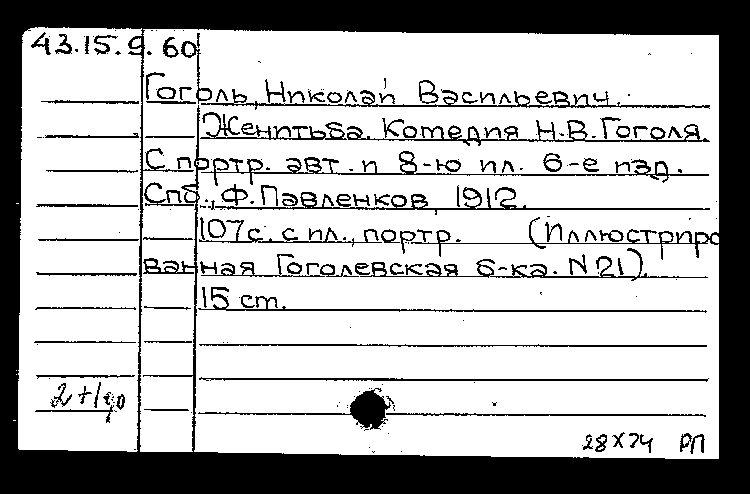 43.15.9.60
Гоголь, Николай Васильевич.
Женитьба. Комедия Н.В.Гоголя.
С портр. авт. и 8-ю ил. 6-е изд.
Спб., Ф.Павленков, 1912.
107с. с ил., портр. (Иллюстриро
ванная Гоголевская б-ка. N21).
15 cm.
2+1
28X74 РП